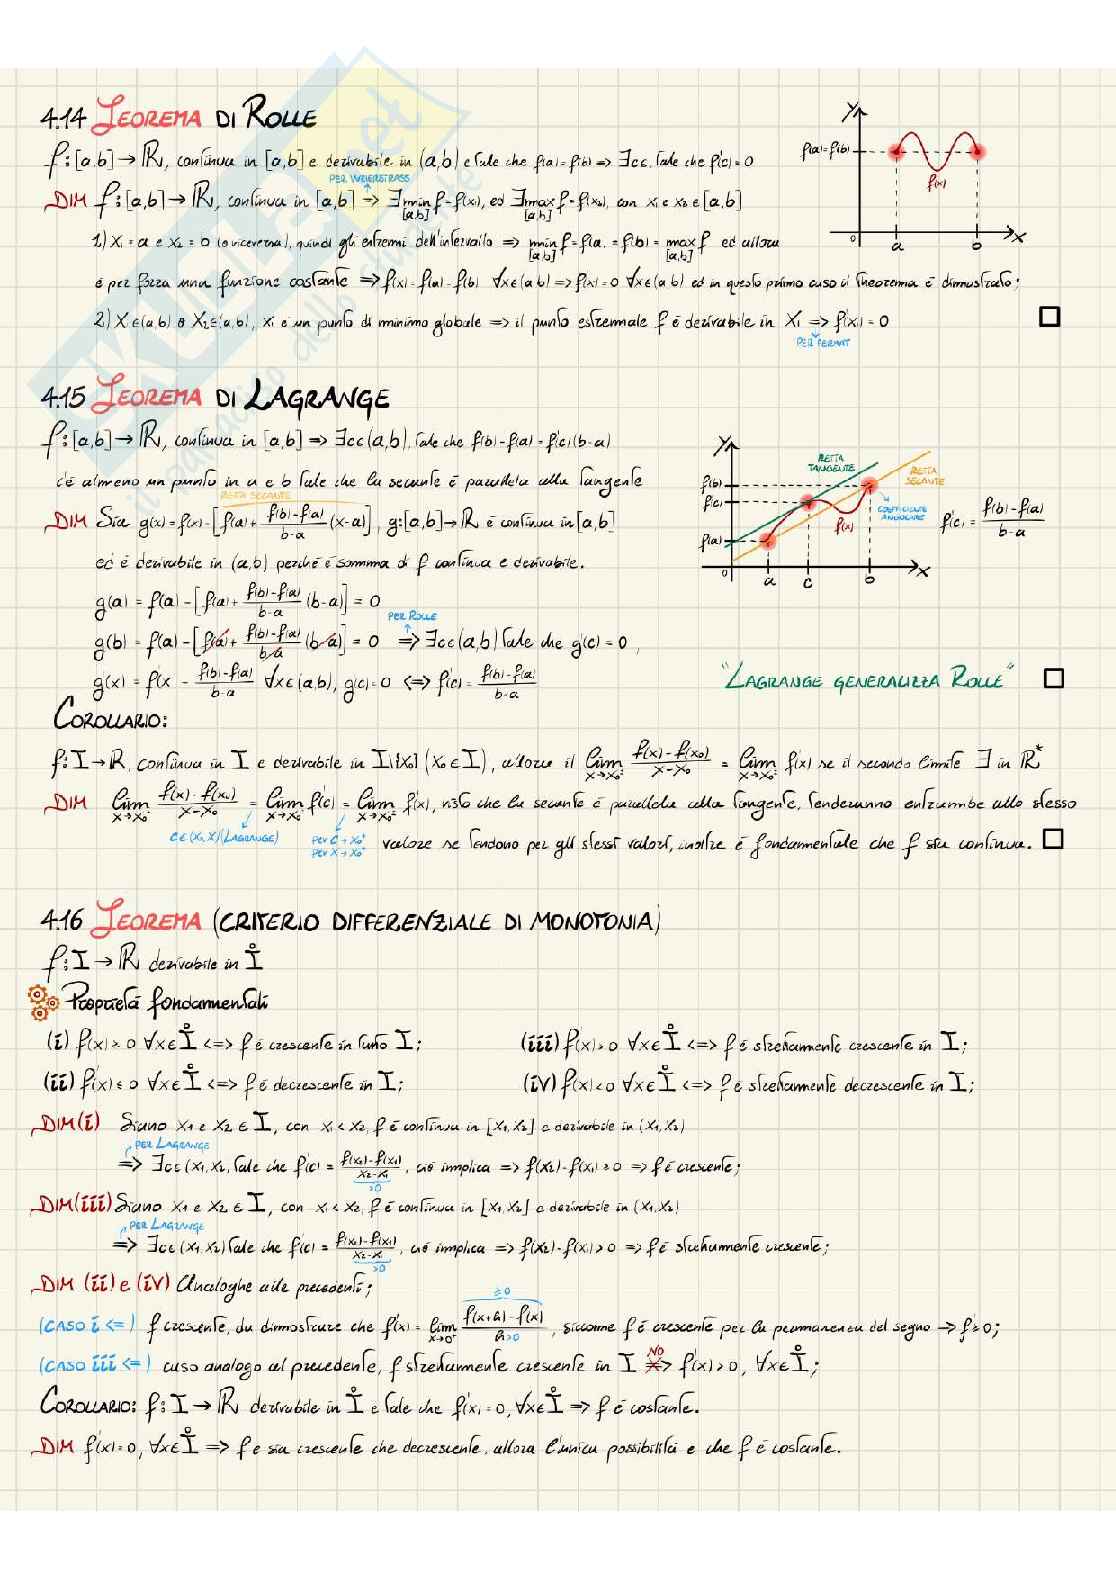 4.14 TEOREMA DI ROLLE
f:[a,b]→ℝ, continua in [a,b] e derivabile in (a,b) e tale che f(a)=f(b) => ∃c∈, tale che f'(c)=0
PER WEIERSTRASS
DIM f:[a,b]→ℝ, continua in [a,b] => ∃min f=f(x₁), ed ∃max f=f(x₂), con x₁ e x₂∈[a,b]
[a,b] [a,b]
1) x₁=a e x₂=b (o viceversa), quindi gli estremi dell'intervallo => min f=f(a)=f(b)=max f ed allora
[a,b] [a,b]
è per forza una funzione costante => f(x)=f(a)=f(b) ∀x∈(a,b) => f'(x)=0 ∀x∈(a,b) ed in questo primo caso il theorema è dimostrato;
2) x₁∈(a,b) o x₂∈(a,b), x₁ è un punto di minimo globale => il punto estremale f è derivabile in x₁ => f'(x)=0 □
PER FERMAT
y
f(a)=f(b)
f(x)
0 a b x
4.15 TEOREMA DI LAGRANGE
f:[a,b]→ℝ, continua in [a,b] => ∃c∈(a,b), tale che f(b)-f(a)=f'(c)(b-a)
c'è almeno un punto in a e b tale che la secante è parallela alla tangente
RETTA SECANTE
DIM Sia g(x)=f(x)-[f(a)+ f(b)-f(a)/b-a (x-a)], g:[a,b]→ℝ è continua in [a,b]
ed è derivabile in (a,b) perché è somma di f continua e derivabile.
g(a)=f(a)-[f(a)+ f(b)-f(a)/b-a (b-a)]=0
PER ROLLE
g(b)=f(a)-[f(a)+ f(b)-f(a)/b-a (b-a)]=0 => ∃c∈(a,b) tale che g'(c)=0,
g(x)=f'(x - f(b)-f(a)/b-a ∀x∈(a,b), g(c)=0 <=> f'(c)= f(b)-f(a)/b-a
y
RETTA TANGENTE
RETTA SECANTE
f(b)
f(c)
f(a)
f(x)
COEFFICIENTE ANGOLARE
f'(c)= f(b)-f(a)/b-a
0 a c b x
"LAGRANGE GENERALIZZA ROLLE" □
COROLLARIO:
f:I→ℝ, continua in I e derivabile in I\{x₀} (x₀∈I), allora il lim x→x₀ f(x)-f(x₀)/x-x₀ = lim x→x₀ f'(x) se il secondo limite ∃ in ℝ*
DIM lim x→x₀ f(x)-f(x₀)/x-x₀ = lim x→x₀ f'(c) = lim x→x₀ f'(x), visto che la secante è parallela alla tangente, tenderanno entrambe allo stesso
c∈(x₀,x)(LAGRANGE) PER c→x₀⁺ PER x→x₀⁺ valore se tendono per gli stessi valori, inoltre è fondamentale che f sia continua. □
4.16 TEOREMA (CRITERIO DIFFERENZIALE DI MONOTONIA)
f:I→ℝ derivabile in I̊
Proprietà fondamentali
(i) f'(x)≥0 ∀x∈I̊ <=> f è crescente in tutto I; (iii) f'(x)>0 ∀x∈I̊ <=> f è strettamente crescente in I;
(ii) f'(x)≤0 ∀x∈I̊ <=> f è decrescente in I; (iv) f'(x)<0 ∀x∈I̊ <=> f è strettamente decrescente in I;
DIM(i) Siano x₁ e x₂∈I, con x₁<x₂, f è continua in [x₁,x₂] e derivabile in (x₁,x₂)
PER LAGRANGE
=> ∃c∈(x₁,x₂, tale che f'(c)= f(x₂)-f(x₁)/x₂-x₁, ciò implica => f(x₂)-f(x₁)≥0 => f è crescente;
>0
DIM(iii) Siano x₁ e x₂∈I, con x₁<x₂, f è continua in [x₁,x₂] e derivabile in (x₁,x₂)
PER LAGRANGE
=> ∃c∈(x₁,x₂) tale che f'(c)= f(x₂)-f(x₁)/x₂-x₁, ciò implica => f(x₂)-f(x₁)>0 => f è strettamente crescente;
>0
DIM (ii) e (iv) Analoghe alle precedenti;
≥0
(CASO i <=) f crescente, da dimostrare che f'(x)= lim x→0⁺ f(x+h)-f(x)/h>0, siccome f è crescente per la permanenza del segno → f'≥0;
NO
(CASO iii <=) caso analogo al precedente, f strettamente crescente in I => f'(x)>0, ∀x∈I̊;
COROLLARIO: f:I→ℝ derivabile in I̊ e tale che f'(x)=0, ∀x∈I̊ => f è costante.
DIM f'(x)=0, ∀x∈I̊ => f è sia crescente che decrescente, allora l'unica possibilità è che f è costante.